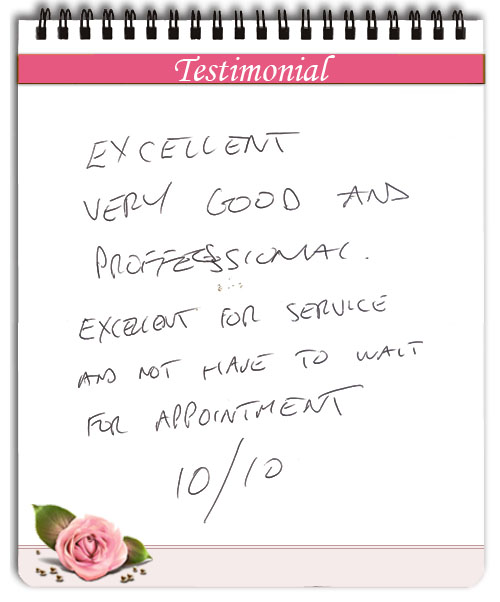 Testimonial
EXCELLENT
VERY GOOD AND
PROFFESSIONAL.
EXCELLENT FOR SERVICE
AND NOT HAVE TO WAIT
FOR APPOINTMENT
10/10